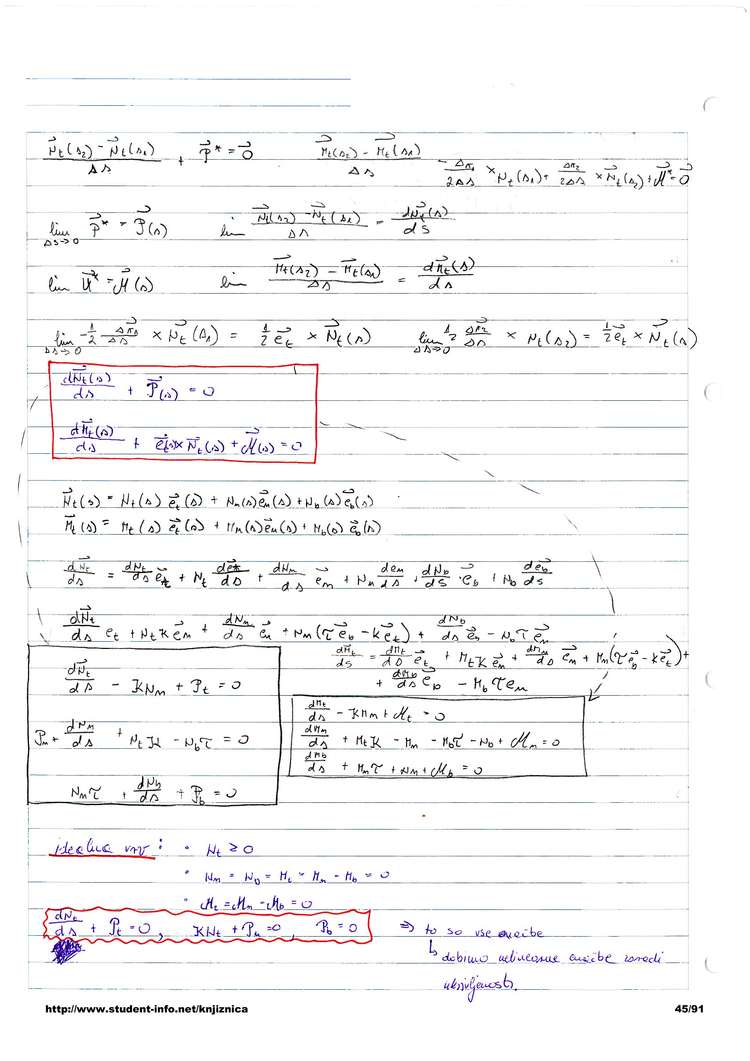 N⃗t(s₂) − N⃗t(s₁) / Δs + P⃗* = 0⃗    M⃗t(s₂) − M⃗t(s₁) / Δs − Δr₁/2Δs × N⃗t(s₁) + Δr₂/2Δs × N⃗t(s₂) + M⃗* = 0⃗
lim Δs→0 P⃗* = P⃗(s)    lim N⃗t(s₂) − N⃗t(s₁) / Δs = dN⃗t(s)/ds
lim M⃗* = M⃗(s)    lim M⃗t(s₂) − M⃗t(s₁) / Δs = dM⃗t(s)/ds
lim Δs→0 −1/2 Δr₁/Δs × N⃗t(s₁) = 1/2 e⃗t × N⃗t(s)    lim Δs→0 1/2 Δr₂/Δs × Nt(s₂) = 1/2 e⃗t × N⃗t(s)
dN⃗t(s)/ds + P⃗(s) = 0
dM⃗t(s)/ds + e⃗t(s) × N⃗t(s) + M⃗(s) = 0
N⃗t(s) = Nt(s) e⃗t(s) + Nn(s) e⃗n(s) + Nb(s) e⃗b(s)
M⃗t(s) = Mt(s) e⃗t(s) + Mn(s) e⃗n(s) + Mb(s) e⃗b(s)
dN⃗t/ds = dNt/ds e⃗t + Nt de⃗t/ds + dNn/ds e⃗n + Nn den/ds + dNb/ds e⃗b + Nb de⃗b/ds
dN⃗t/ds et + Nt K e⃗n + dNn/ds e⃗n + Nn(τ e⃗b − K e⃗t) + dNb/ds e⃗n − Nb τ e⃗n
dMt/ds = dMt/ds e⃗t + Mt K e⃗n + dMn/ds e⃗n + Mn(τ e⃗b − K e⃗t) +
+ dMb/ds e⃗b − Mb τ en
dN⃗t/ds − K Nn + Pt = 0
Pn + dNn/ds + Nt K − Nb τ = 0
Nn τ + dNb/ds + Pb = 0
dMt/ds − K Mn + Mt = 0
dMn/ds + Mt K − Mn − Mb τ − Nb + Mn = 0
dMb/ds + Mn τ + Nn + Mb = 0
idealna vrv : • Nt ≥ 0
• Nn = Nb = Mt = Mn = Mb = 0
• Mt = Mn = Mb = 0
dNt/ds + Pt = 0, K Nt + Pn = 0, Pb = 0 ⇒ to so vse enačbe
↳ dobimo nelinearne enačbe zaradi
ukrivljenosti.
http://www.student-info.net/knjiznica    45/91